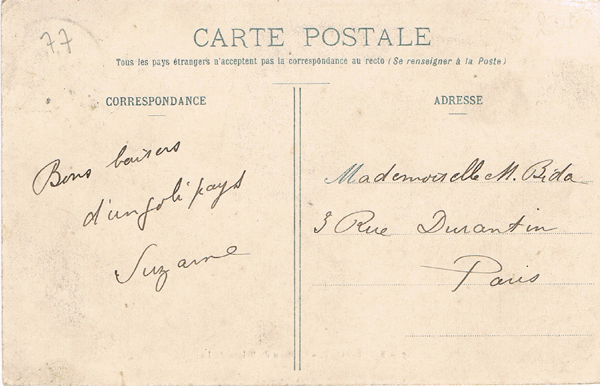 77
CARTE POSTALE
Tous les pays étrangers n'acceptent pas la correspondance au recto (Se renseigner à la Poste)
CORRESPONDANCE
Bons baisers
d'un joli pays
Suzanne
ADRESSE
Mademoiselle M. Bida
3 Rue Durantin
Paris